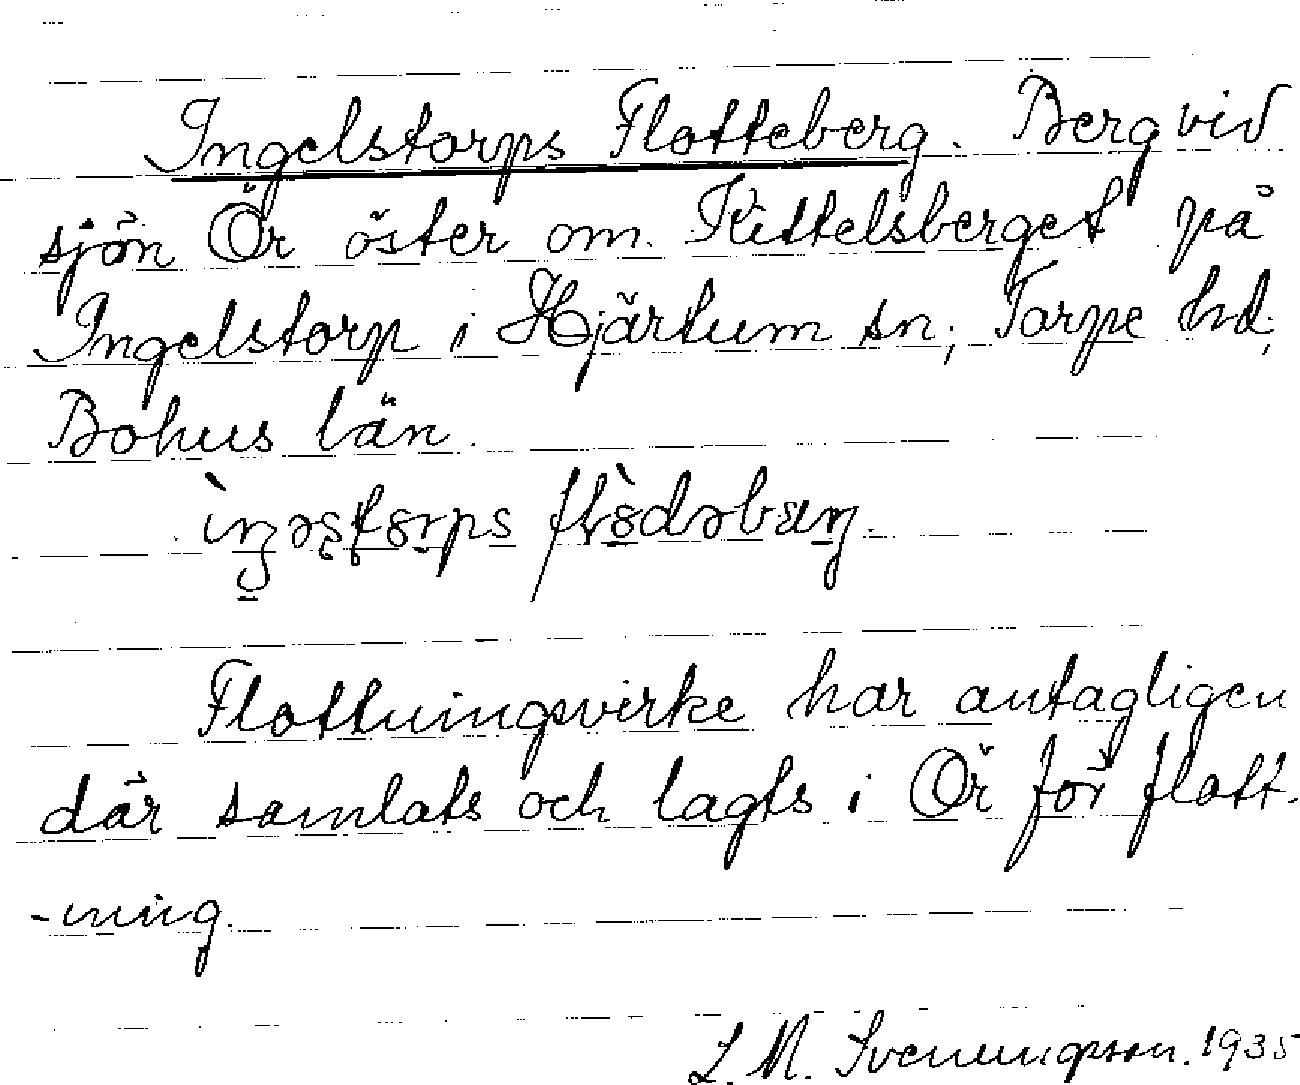 Ingelstorps Flotteberg. Berg vid
sjön Ör öster om Kittelsberget på
Ingelstorp i Hjärtum sn; Torpe hd;
Bohus län.
Flottningsvirke har antagligen
där samlats och lagts i Ör för flott-
-ning.
L. M. Svenungsson. 1935